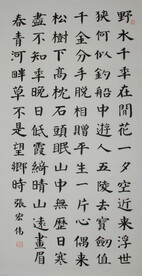 野水千年在閒花一夕空近来浮世
狹何似釣船中遊人五陵去寶劍值
千金分手脫相贈平生一片心偶来
松樹下高枕石頭眠山中無曆日寒
盡不知年晚日低霞綺晴山遠畫眉
春青河畔草不是望鄉時張宏偉